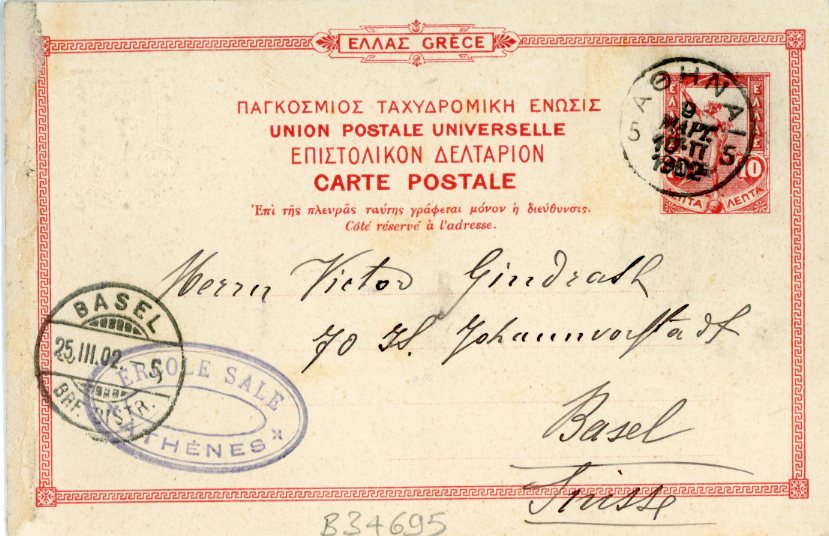 ΕΛΛΑΣ GRÈCE
ΠΑΓΚΟΣΜΙΟΣ ΤΑΧΥΔΡΟΜΙΚΗ ΕΝΩΣΙΣ
UNION POSTALE UNIVERSELLE
ΕΠΙΣΤΟΛΙΚΟΝ ΔΕΛΤΑΡΙΟΝ
CARTE POSTALE
Ἐπὶ τῆς πλευρᾶς ταύτης γράφεται μόνον ἡ διεύθυνσις.
Côté réservé à l'adresse.
ΑΘΗΝΑΙ
9
ΜΑΡΤ
1902
5 5
ΕΛΛΑΣ
10
ΛΕΠΤΑ ΛΕΠΤΑ
Herrn Victor Gindrath
70 St. Johannvorstadt
Basel
Suisse
BASEL
25.III.02 5
BRF. DISTR.
ERCOLE SALE
ATHÈNES
B34695